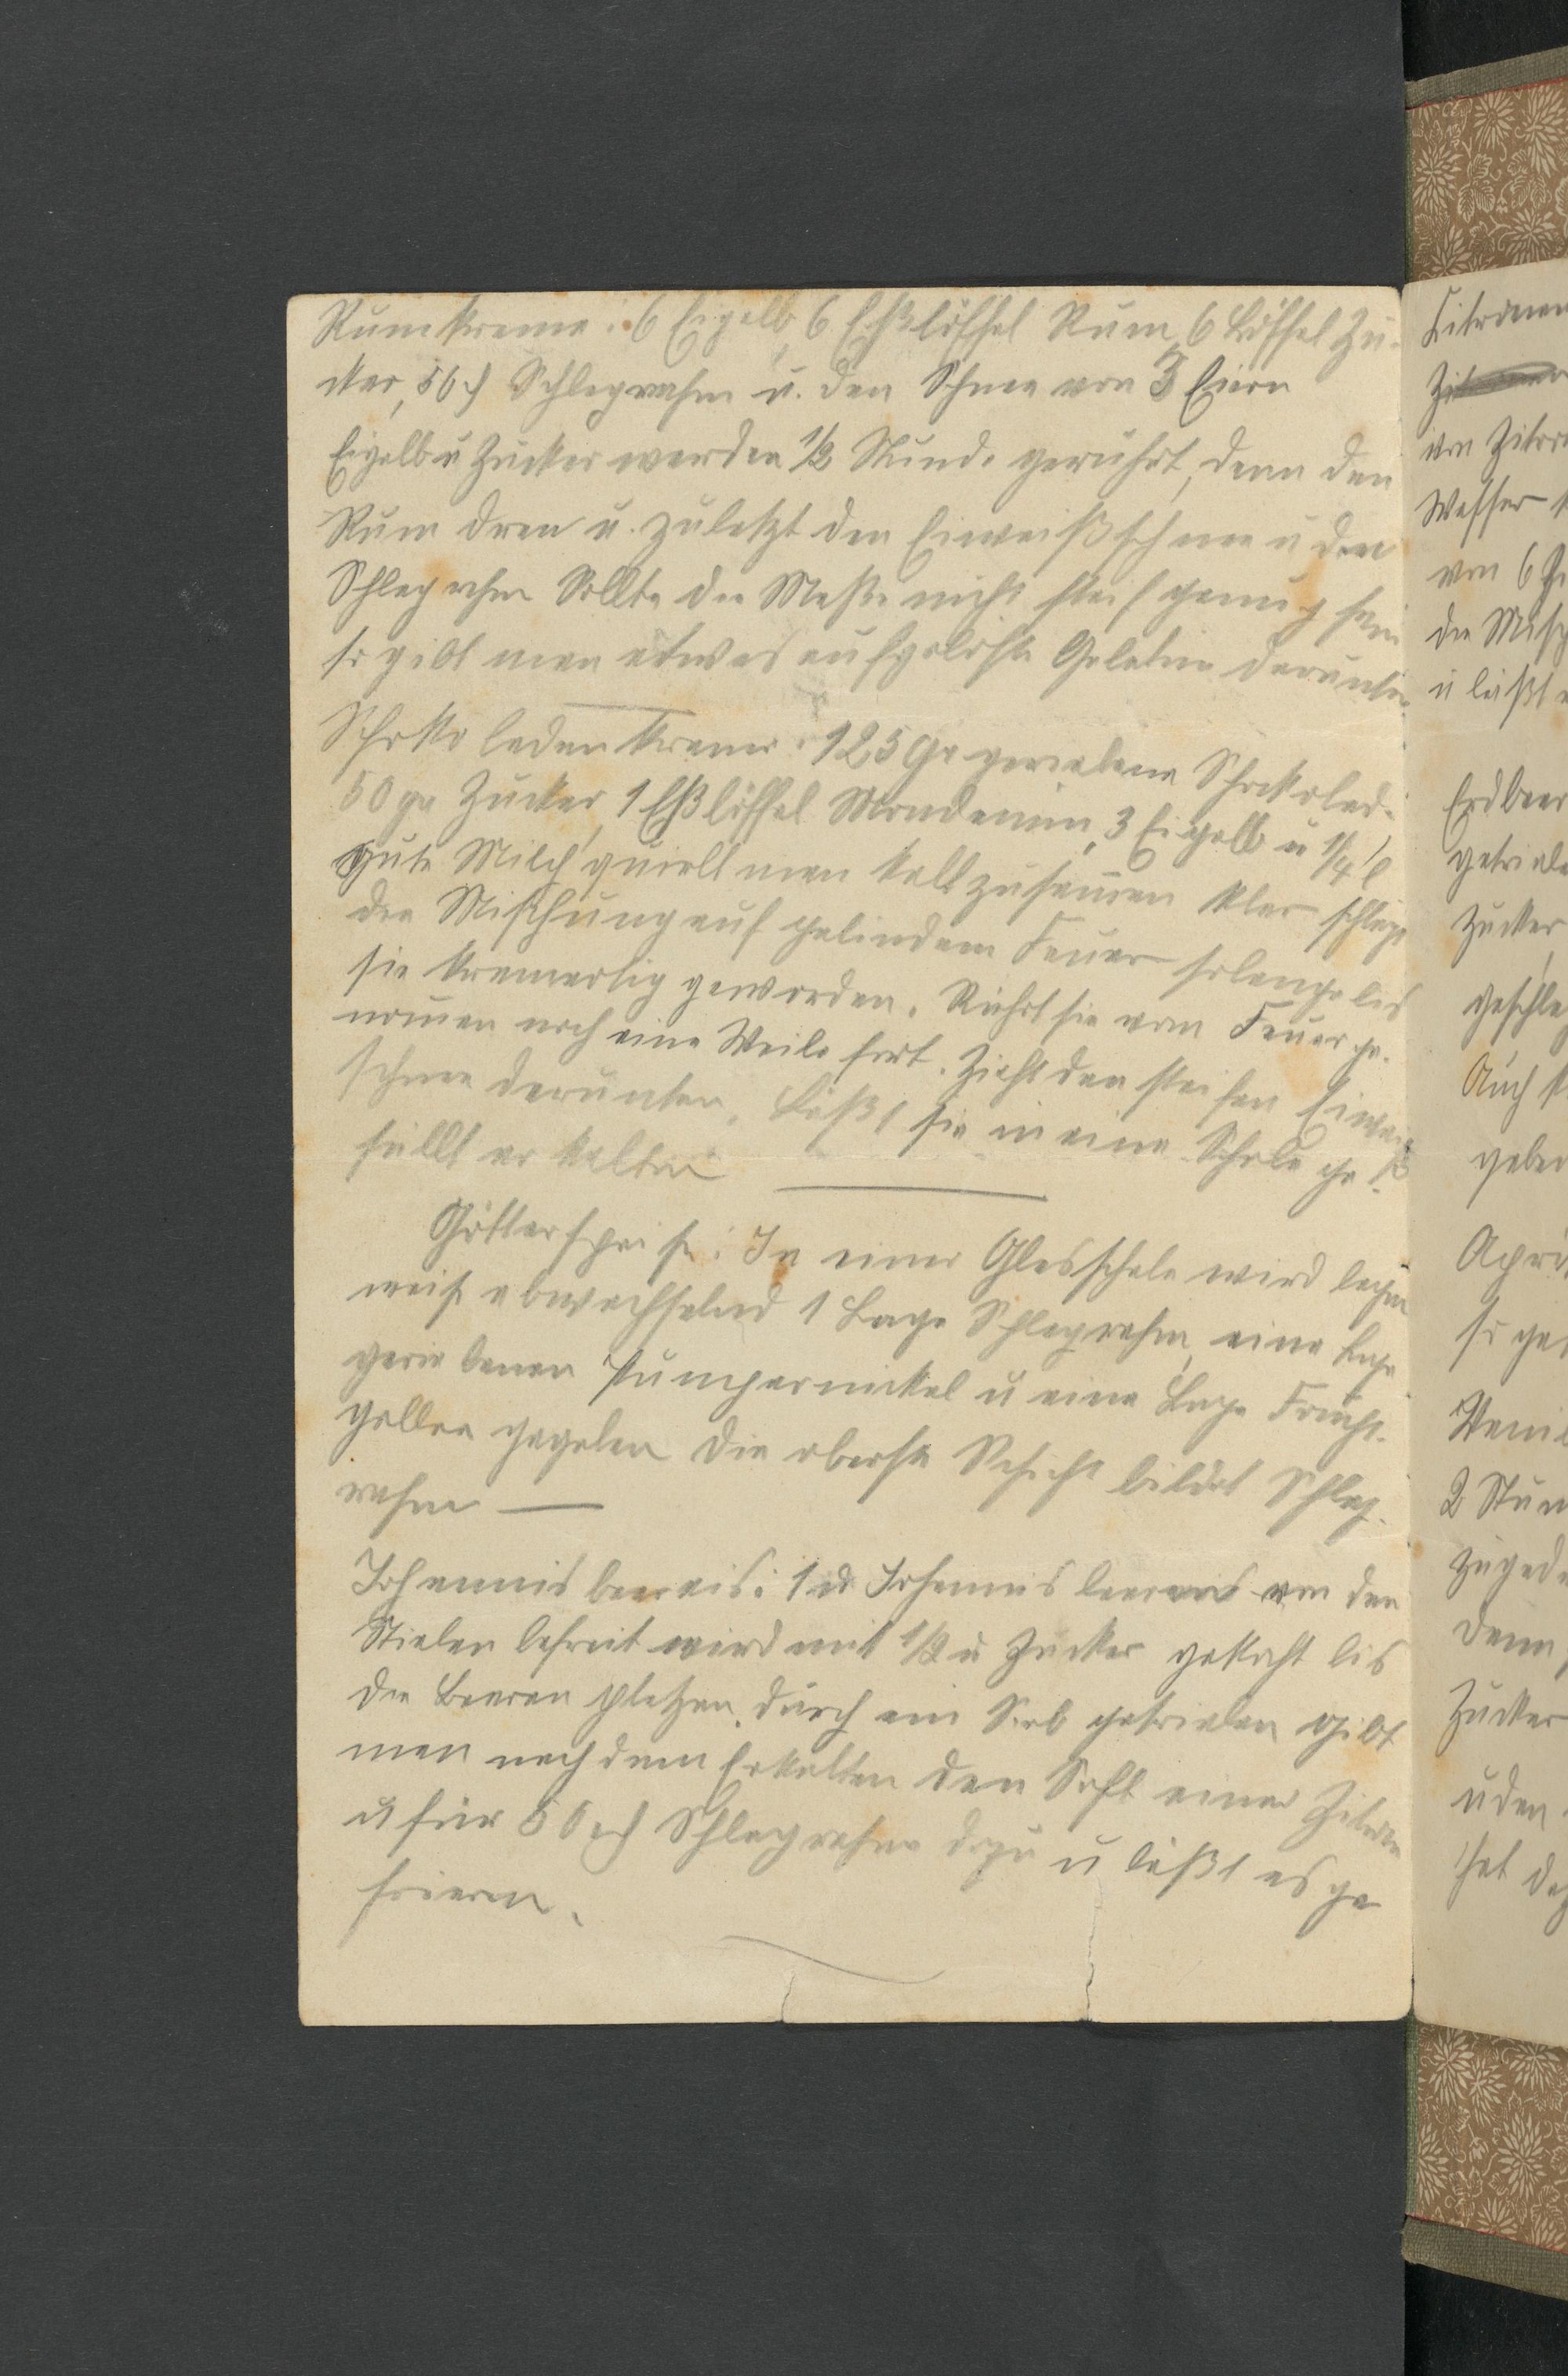 Rumkreme: 6 Eigelb, 6 Eßlöffel Rum, 6 Löffel Zu-
cker, 50 ₰ Schlagrahm u. den Schnee von 3 Eiern
Eigelb u Zucker werden 1/2 Stunde gerührt, dann den
Rum dran u. zuletzt den Eiweißschnee u den
Schlagrahm Sollte die Maße nicht steif genug sein
so gibt man etwas aufgelöste Gelatine darunter
Schokoladenkreme: 125 Gr geriebene Schokolade
50 gr Zucker, 1 Eßlöffel Mondamin, 3 Eigelb u 1/4 l
gute Milch quirlt man kalt zusamen klar schlägt
die Mischung auf gelindem Feuer solange bis
sie kremartig geworden. Rührt sie vom Feuer ge-
nomen noch eine Weile fort. Zieht den steifen Eiweiß
schnee darunter. Läßt sie in eine Schale ge-
füllt erkalten
Götterspeise: In einer Glasschale wird lagen
weise abwechselnd 1 Lage Schlagrahm, eine Lage
geriebenen Pumpernickel u eine Lage Frucht-
gallee gegeben Die oberste Schicht bildet Schlag-
rahm
Johannisbeereis: 1 ℔ Johannisbeeren von den
Stielen befreit wird mit 1/2 ℔ Zucker gekocht bis
die Beeren platzen, durch ein Sieb getrieben gibt
man nach dem Erkalten den Saft einer Zitrone
u für 50 ₰ Schlagrahm dazu u läßt es ge
frieren.
Zitronen
von Zitro
Wasser
von 6
die Misch
u läßt
Erdbeer
getriebe
Zucker
geschla
Auch
geben
Apri
so ge
Vanil
2 Stun
zugede
dann
Zucker
u den